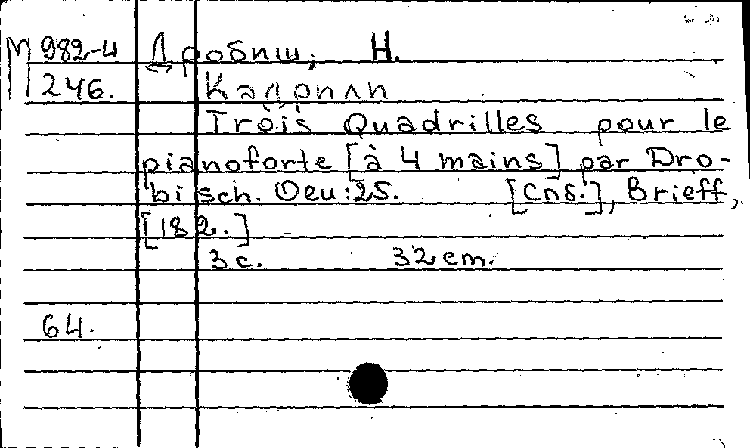 М 982-4 Дробиш, Н.
246. Кадрили
Trois Quadrilles pour le
pianoforte [à 4 mains] par Dro-
bisch. Oeu: 25. [Спб.], Brieff,
[182.]
3 с. 32 cm.
64.